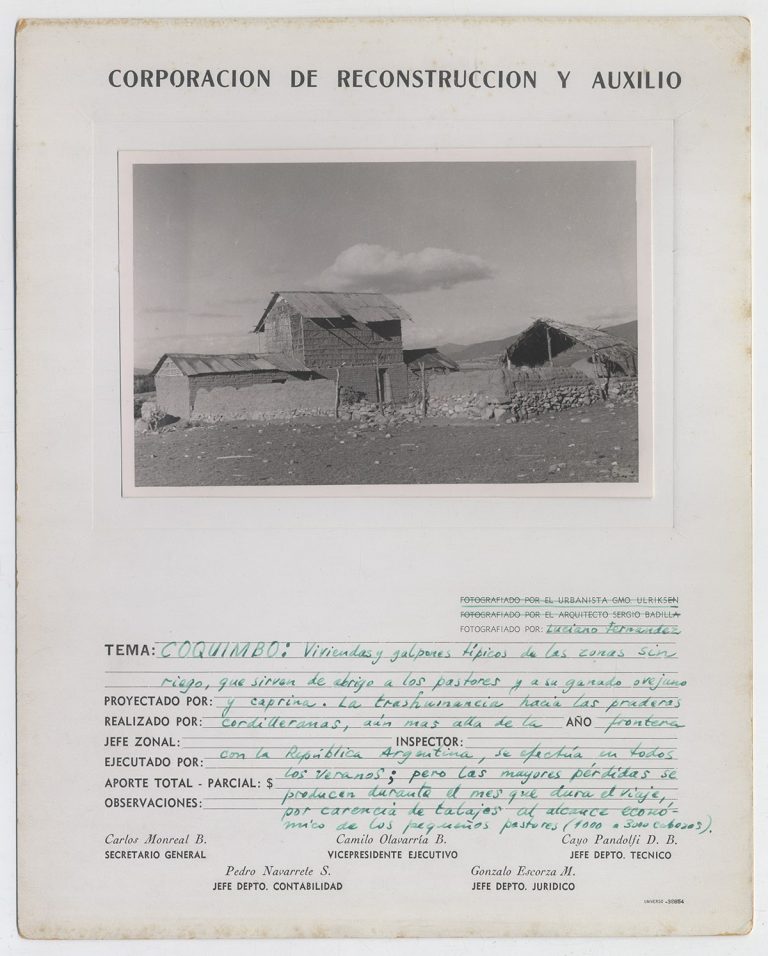 CORPORACION DE RECONSTRUCCION Y AUXILIO
FOTOGRAFIADO POR EL URBANISTA GMO. ULRIKSEN
FOTOGRAFIADO POR EL ARQUITECTO SERGIO BADILLA
FOTOGRAFIADO POR: Luciano Fernandez
TEMA: COQUIMBO: Viviendas y galpones típicos de las zonas sin
riego, que sirven de abrigo a los pastores y a su ganado ovejuno
PROYECTADO POR: y caprino. La trashumancia hacia las praderas
REALIZADO POR: cordilleranas, aún mas alla de la AÑO frontera
JEFE ZONAL: INSPECTOR:
EJECUTADO POR: con la República Argentina, se efectúa en todos
APORTE TOTAL - PARCIAL: $ los veranos; pero las mayores pérdidas se
OBSERVACIONES: producen durante el mes que dura el viaje,
por carencia de talajes al alcance econó-
mico de los pequeños pastores (1000 a 3000 cabezas).
Carlos Monreal B. Camilo Olavarría B. Cayo Pandolfi D. B.
SECRETARIO GENERAL VICEPRESIDENTE EJECUTIVO JEFE DEPTO. TECNICO
Pedro Navarrete S. Gonzalo Escorza M.
JEFE DEPTO. CONTABILIDAD JEFE DEPTO. JURIDICO
UNIVERSO